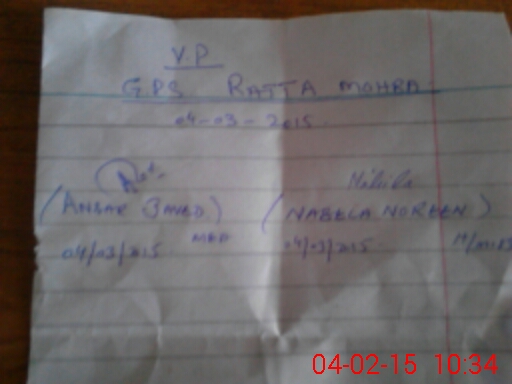 V.P
GPS RATTA MOHRA
04-03-2015.
Nabila
(ANSAR JAVED) (NABELA NOREEN)
04/03/2015 MEA 04/03/2015
04-02-15 10:34